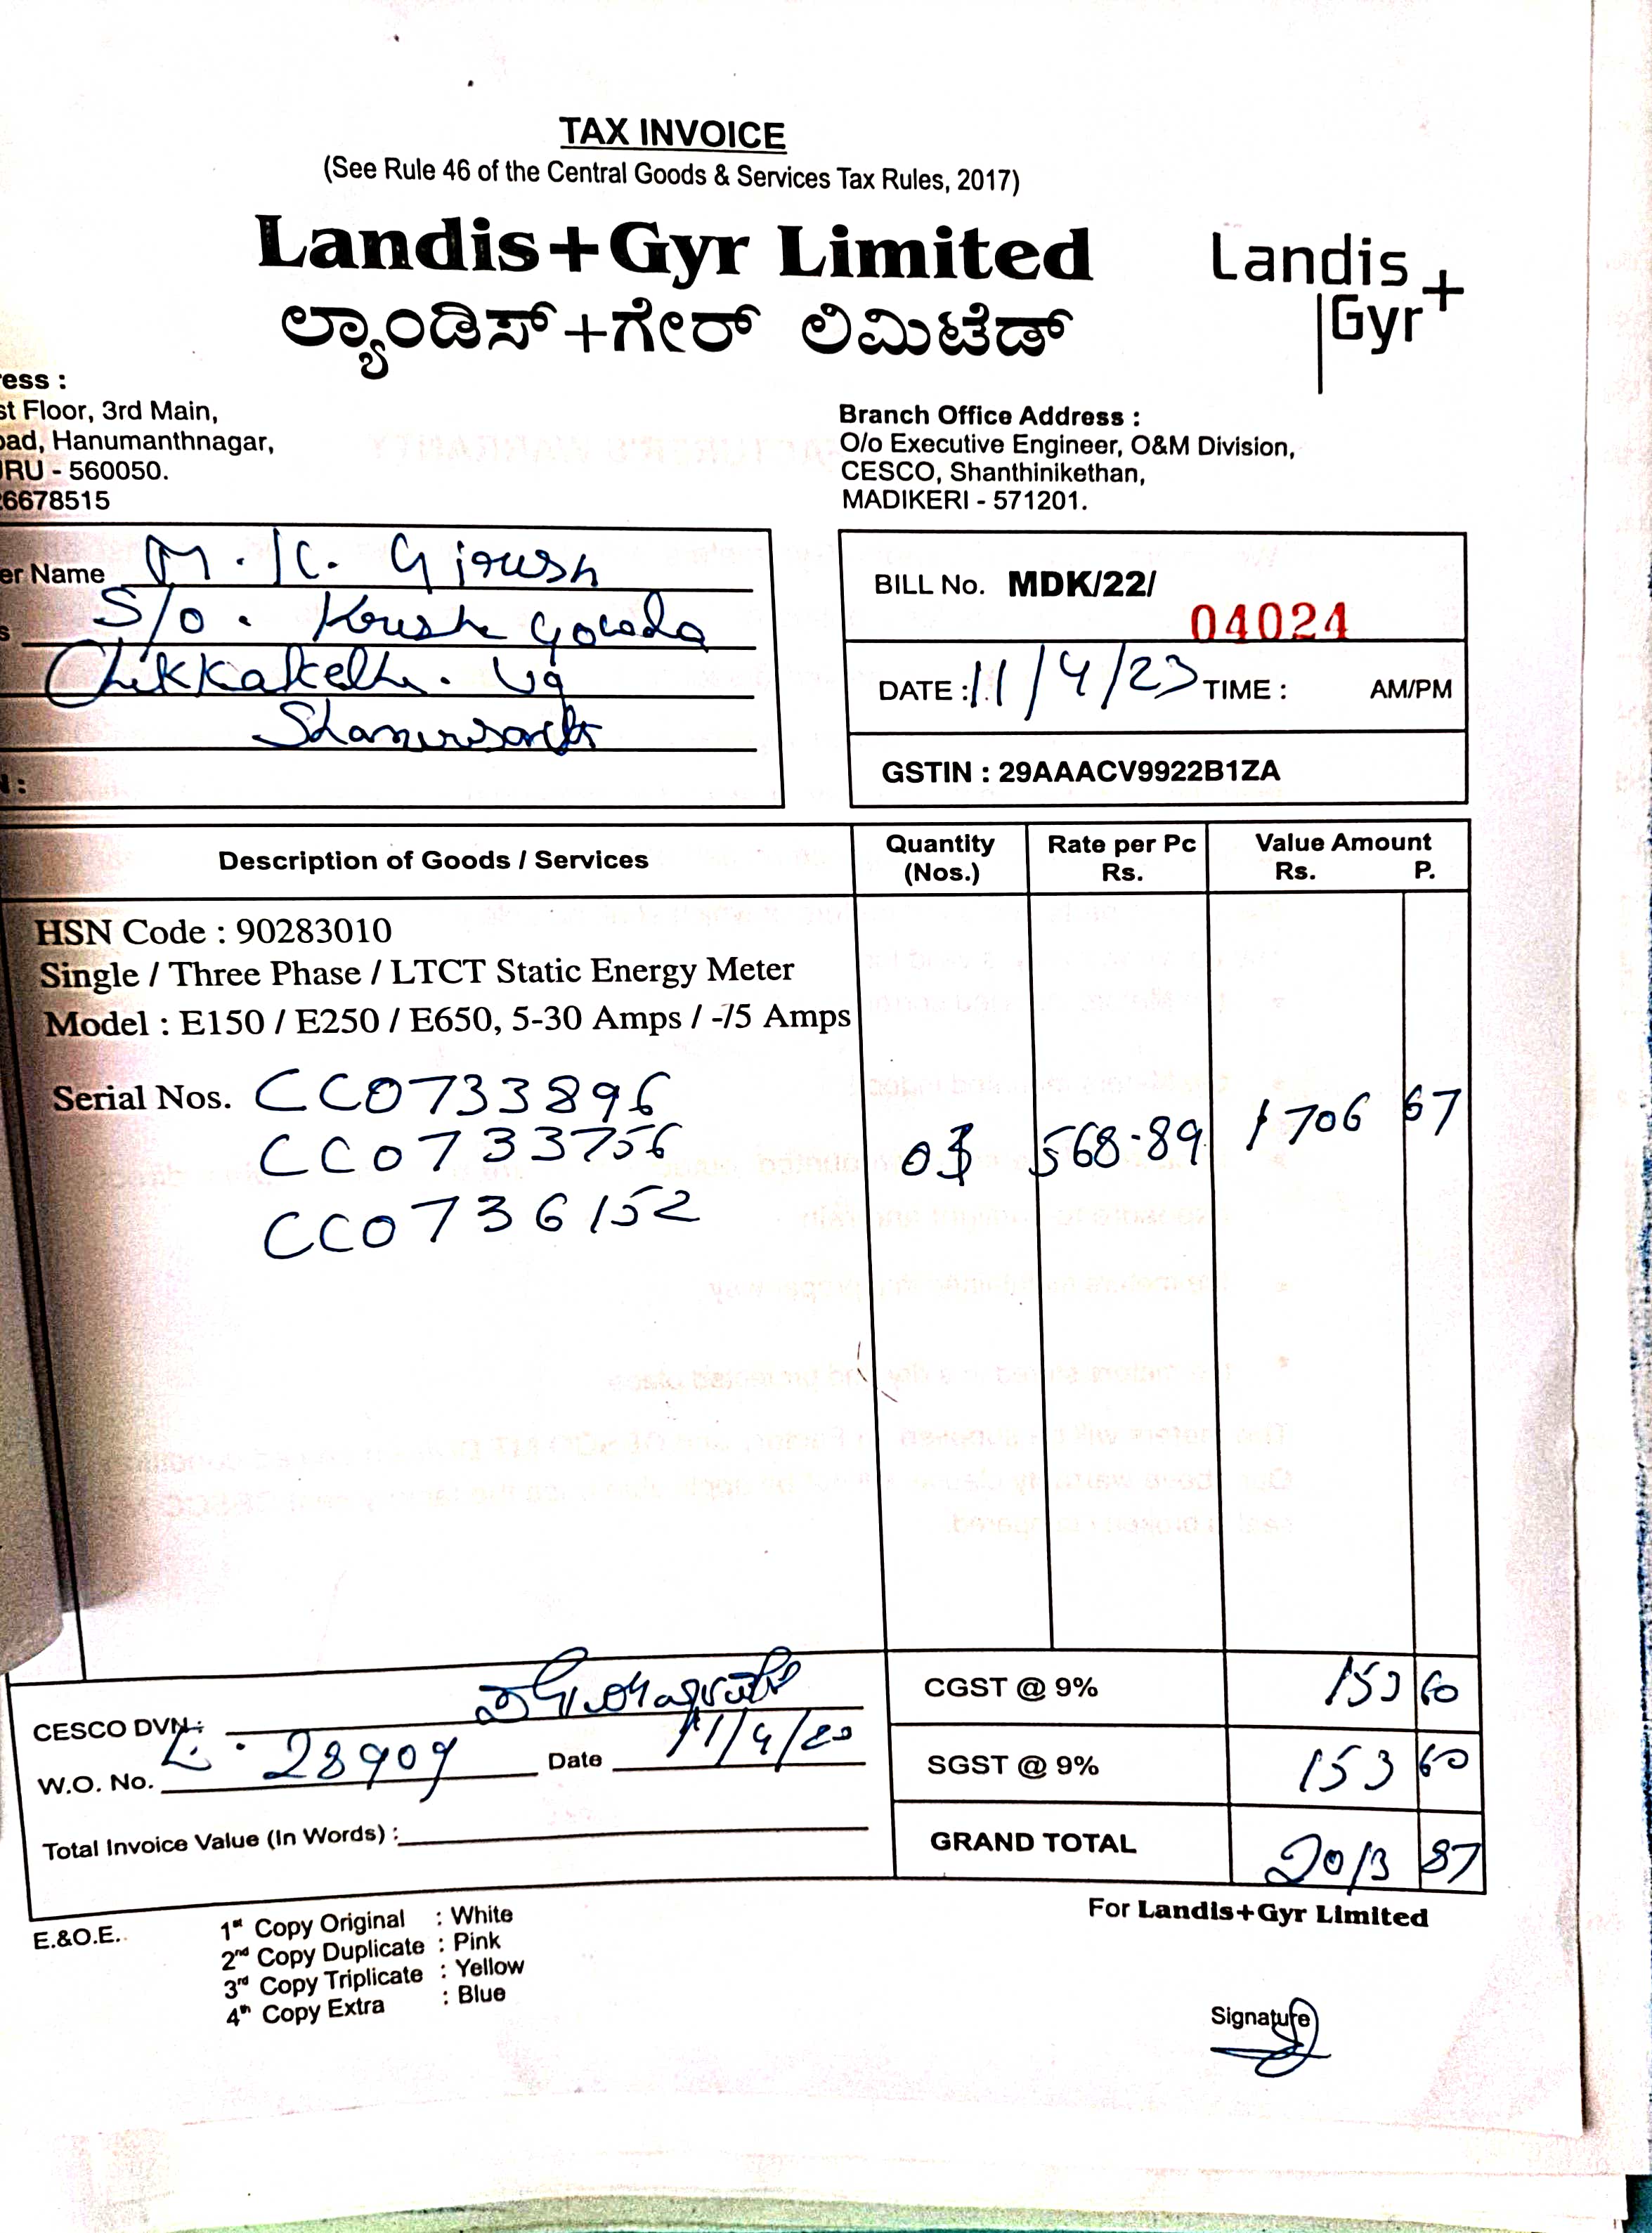 TAX INVOICE
(See Rule 46 of the Central Goods & Services Tax Rules, 2017)
Landis+Gyr Limited
ಲ್ಯಾಂಡಿಸ್+ಗೇರ್ ಲಿಮಿಟೆಡ್
Landis
Gyr+
ess :
st Floor, 3rd Main,
oad, Hanumanthnagar,
URU - 560050.
26678515
Branch Office Address :
O/o Executive Engineer, O&M Division,
CESCO, Shanthinikethan,
MADIKERI - 571201.
er Name M. K. Girish
s S/o. Gowda
Chikkakolli. Vg
:
BILL No. MDK/22/
04024
DATE : 11/4/23 TIME : AM/PM
GSTIN : 29AAACV9922B1ZA
Description of Goods / Services Quantity (Nos.) Rate per Pc Rs. Value Amount Rs. P.
HSN Code : 90283010
Single / Three Phase / LTCT Static Energy Meter
Model : E150 / E250 / E650, 5-30 Amps / -/5 Amps
Serial Nos. CC0733896
CC0733756 03 568-89 1706 67
CC0736152
CGST @ 9% 153 60
CESCO DVN.:
W.O. No. L. 28909 Date 11/4/23
SGST @ 9% 153 60
Total Invoice Value (In Words) :
GRAND TOTAL 2013 87
E.&O.E.
1st Copy Original : White
2nd Copy Duplicate : Pink
3rd Copy Triplicate : Yellow
4th Copy Extra : Blue
For Landis+Gyr Limited
Signature